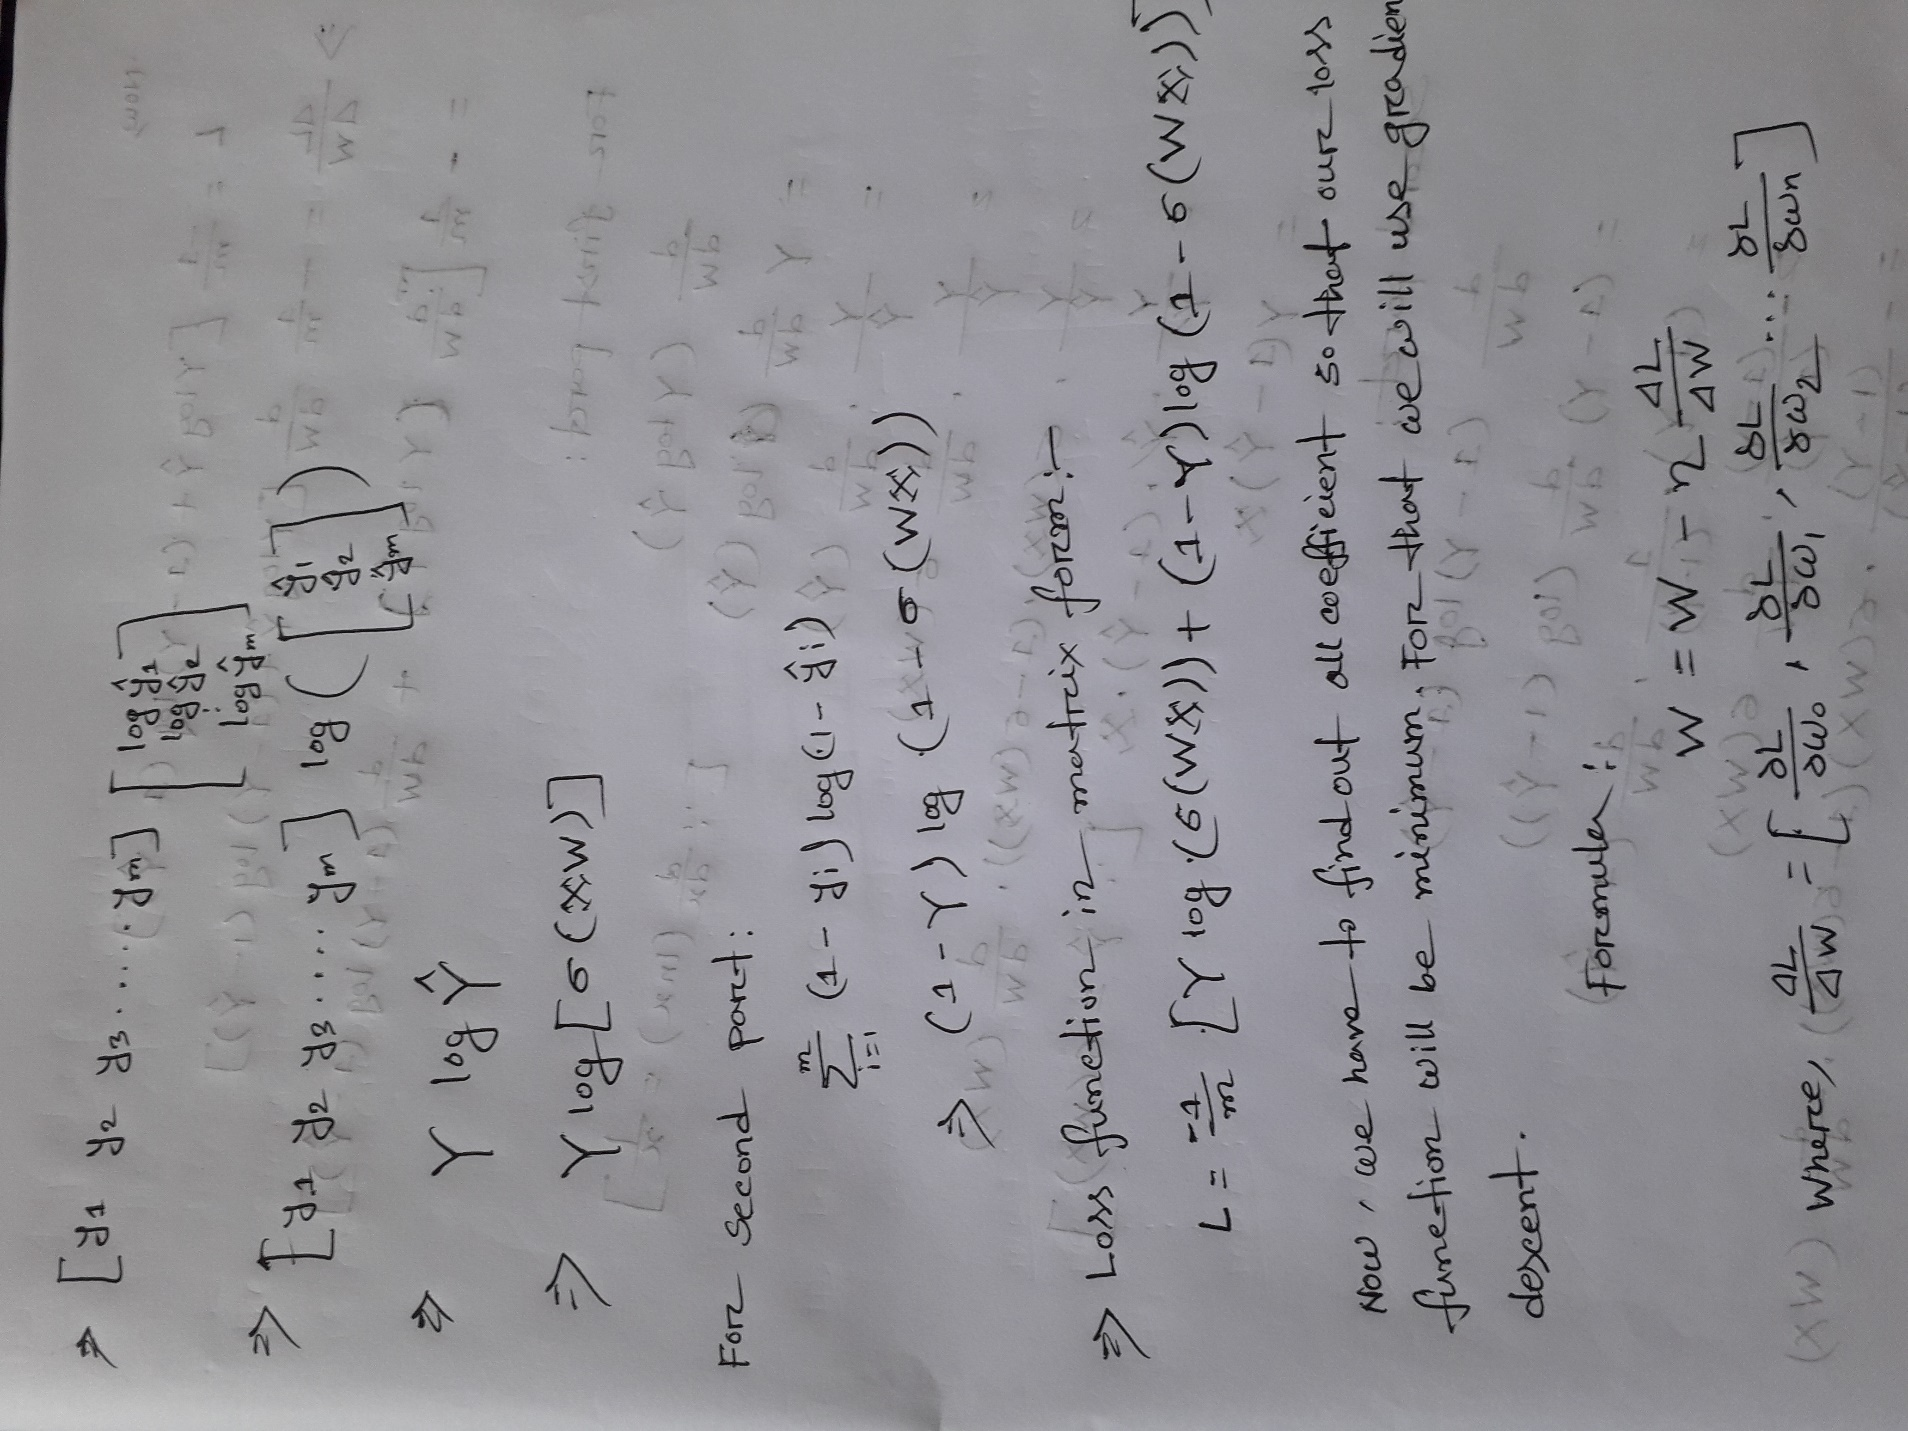 ⇒ [y1 y2 y3 ..... ym] [log ŷ1
log ŷ2
⋮
log ŷm]
⇒ [y1 y2 y3 .... ym] log ([ŷ1
ŷ2
⋮
ŷm])
⇒ Y log Ŷ
⇒ Y log [σ(XW)]
For Second part:
m
Σ (1 - yi) log (1 - ŷi)
i=1
⇒ (1 - Y) log (1 - σ(WX))
⇒ Loss function in matrix form :-
L = -1/m [Y log (σ(WX)) + (1-Y) log (1 - σ(WX))]
Now, we have to find out all coefficient so that our loss
function will be minimum. For that we will use gradien
descent.
Formula :
W = W - η ΔL/ΔW
where, ΔL/ΔW = [∂L/∂w0, ∂L/∂w1, ∂L/∂w2 .... ∂L/∂wn]